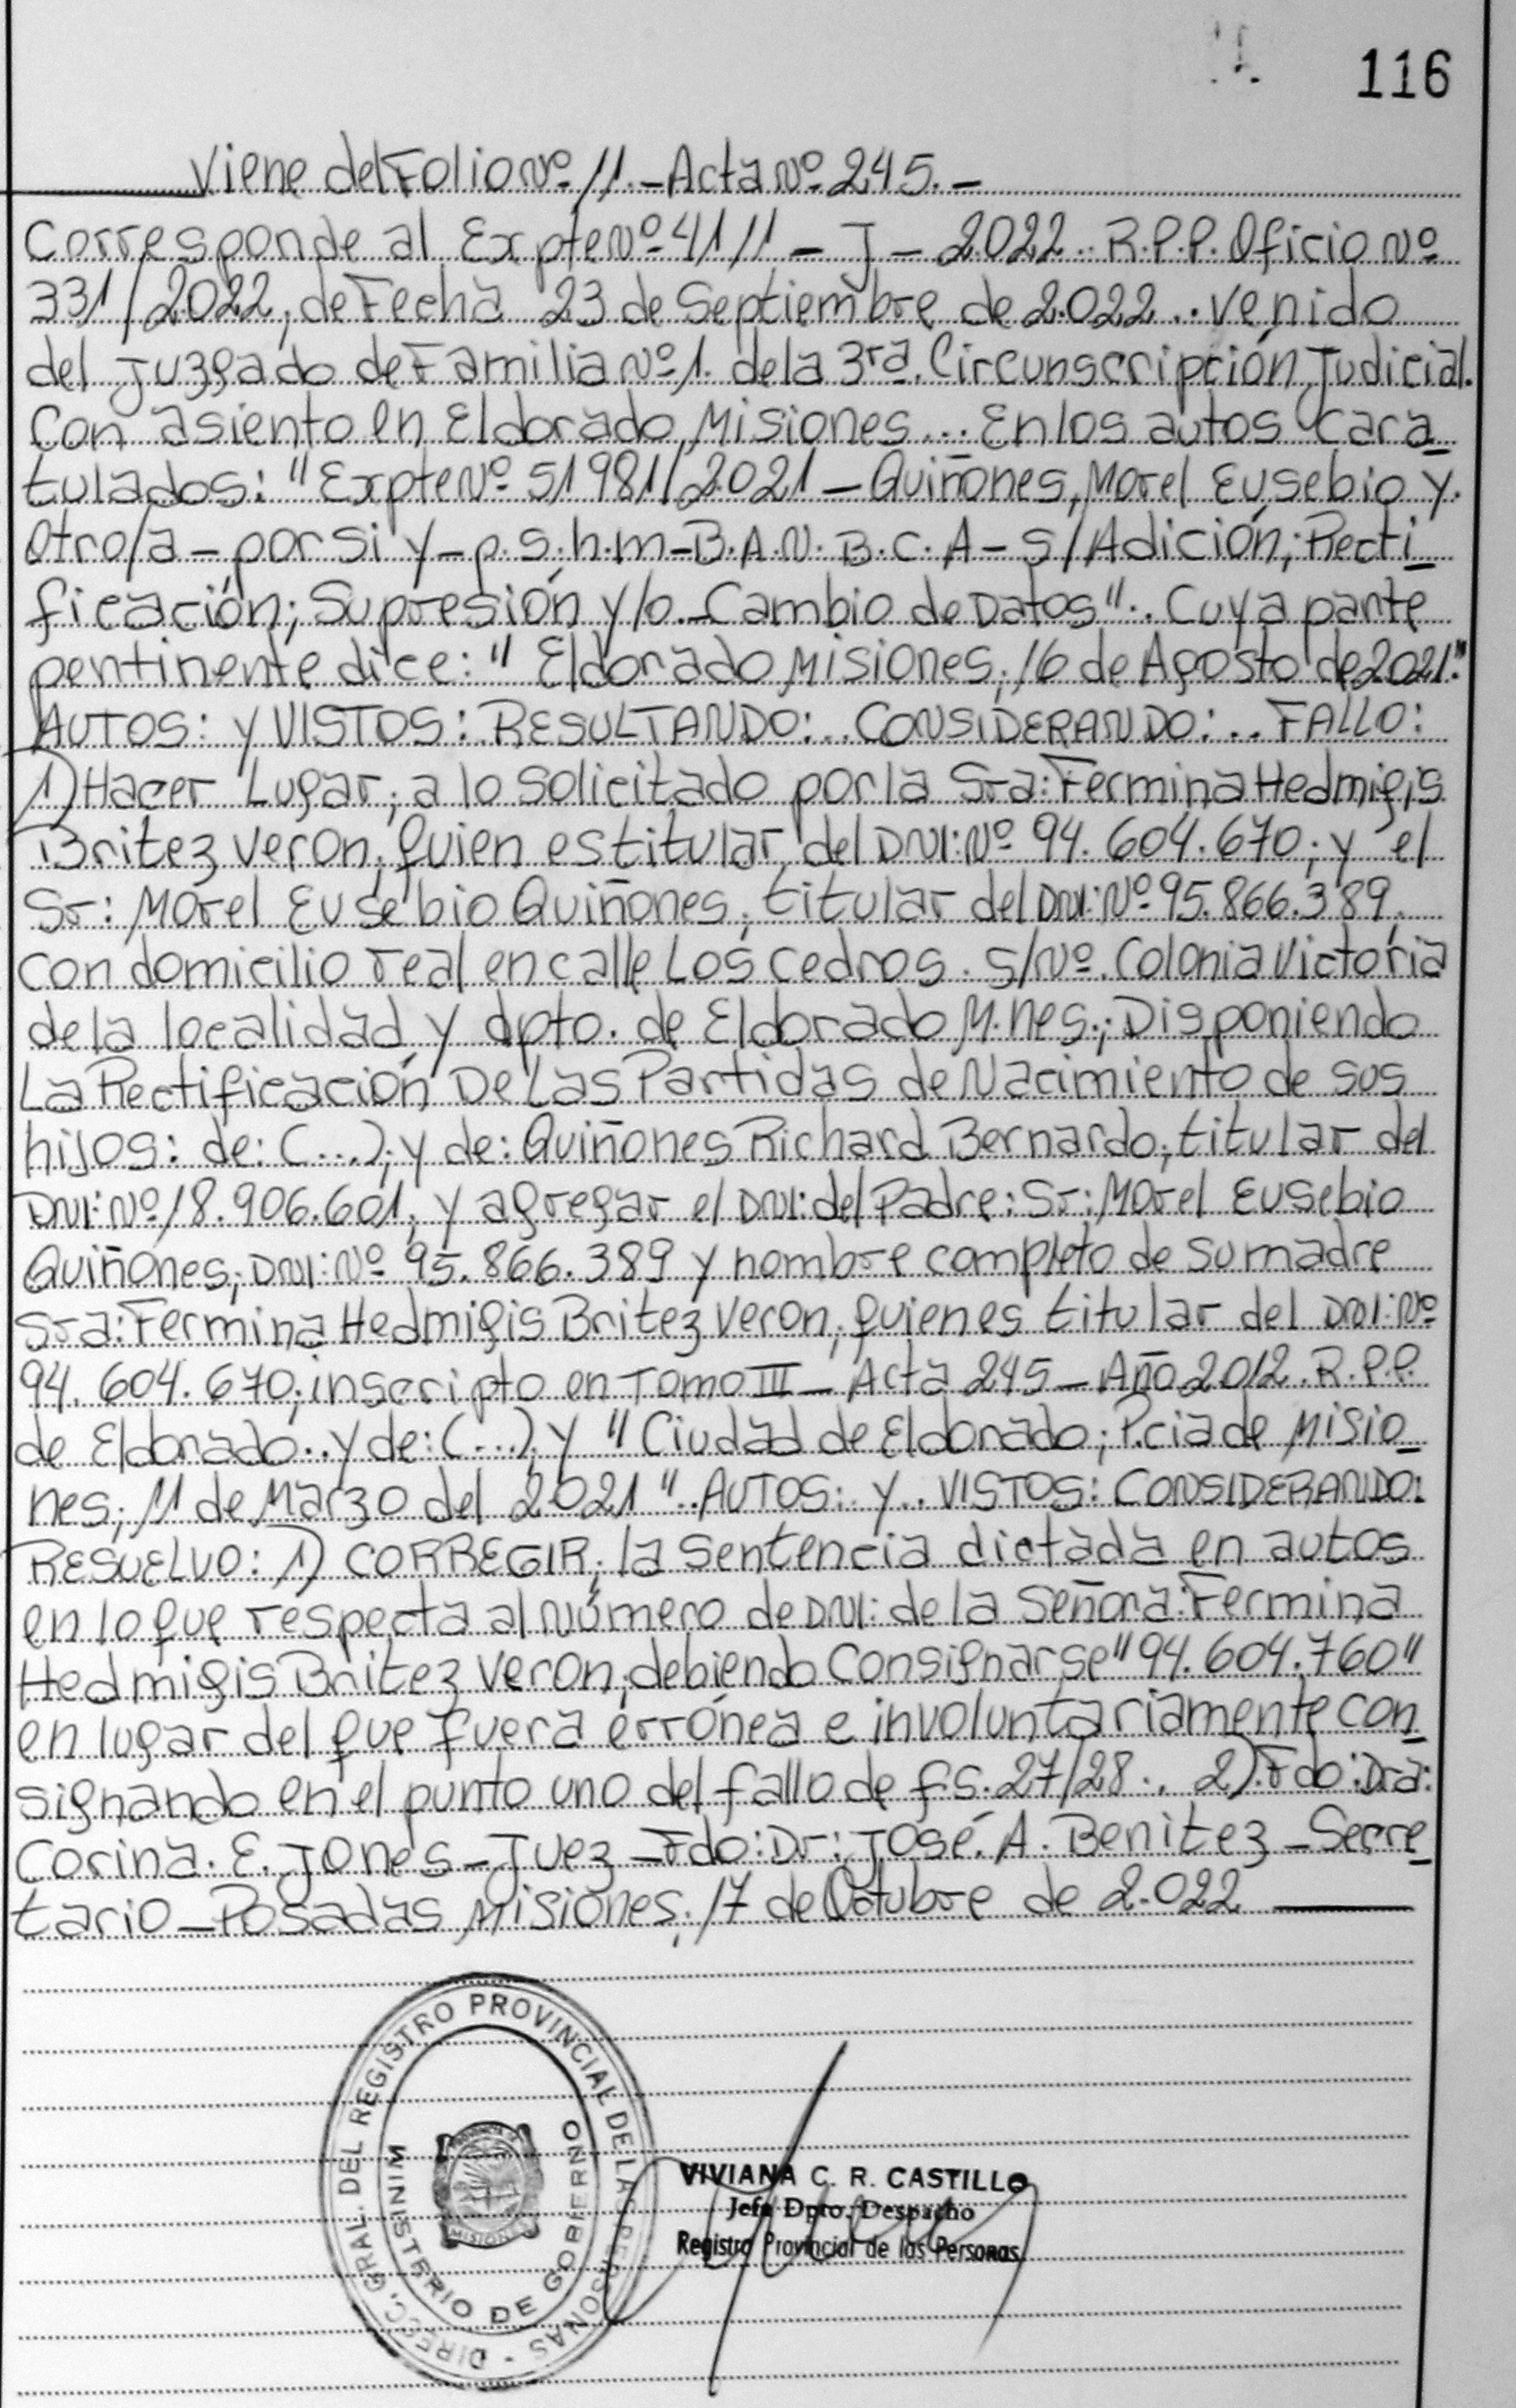 116
Viene del Folio Nº 11.-Acta Nº 245.-
Corresponde al Expte Nº 4111 - J - 2.022.. R.P.P. Oficio Nº
331/2022, de Fecha 23 de Septiembre de 2.022... venido
del Juzgado de Familia Nº 1. de la 3ra. Circunscripción Judicial.
Con asiento en Eldorado, Misiones... En los autos Cara
tulados: "Expte Nº 51981/2.021 - Quiñones, Morel Eusebio y.
Otro/a - por si y - p.s.h.m-B.A.N. B.C.A - S/Adición; Recti
ficación; Supresión y/o.-Cambio de Datos".. Cuya parte
pentinente dice: " Eldorado, Misiones; 16 de Agosto de 2021."
AUTOS: y VISTOS: RESULTANDO:.. CONSIDERANDO:... FALLO:
1) Hacer Lugar; a lo solicitado por la Sra: Fermina Hedmigis
Britez Veron; quien es titular del DNI: Nº 94.604.670; y el
Sr: Morel Eusebio Quiñones; titular del DNI: Nº 95.866.389,
con domicilio real en calle Los Cedros. S/Nº. Colonia Victoria
de la localidad y dpto. de Eldorado, M.nes.; Disponiendo
La Rectificación De Las Partidas de Nacimiento de sus
hijos: de: (...); y de: Quiñones Richard Bernardo; titular del
DNI: Nº 18.906.601; y agregar el DNI: del Padre: Sr: Morel Eusebio
Quiñones; DNI: Nº 95.866.389 y nombre completo de su madre
Sra: Fermina Hedmigis Britez Veron; quien es titular del DNI: Nº
94.604.670; inscripto en Tomo III - Acta 245 - Año 2012. R.P.P.
de Eldorado.. y de: (...); y " Ciudad de Eldorado; P.cia de Misio
nes; 11 de Marzo del 2021 ".. AUTOS: y.. VISTOS: CONSIDERANDO:
RESUELVO: 1) CORREGIR; la sentencia dictada en autos
en lo que respecta al Número de DNI: de la Señora: Fermina
Hedmigis Britez Veron; debiendo Consignarse "94.604.760"
en lugar del que fuera errónea e involuntariamente con
signando en el punto uno del fallo de fs. 27/28.. 2). Fdo: Dra:
Corina. E. Jones - Juez - Fdo: Dr: José. A. Benitez - Secre
tario - Posadas, Misiones; 17 de Octubre de 2.022
DIRECC. GRAL. DEL REGISTRO PROVINCIAL DE LAS PERSONAS -
MINISTERIO DE GOBIERNO
MISIONES
VIVIANA C. R. CASTILLO
Jefa Dpto. Despacho
Registro Provincial de las Personas